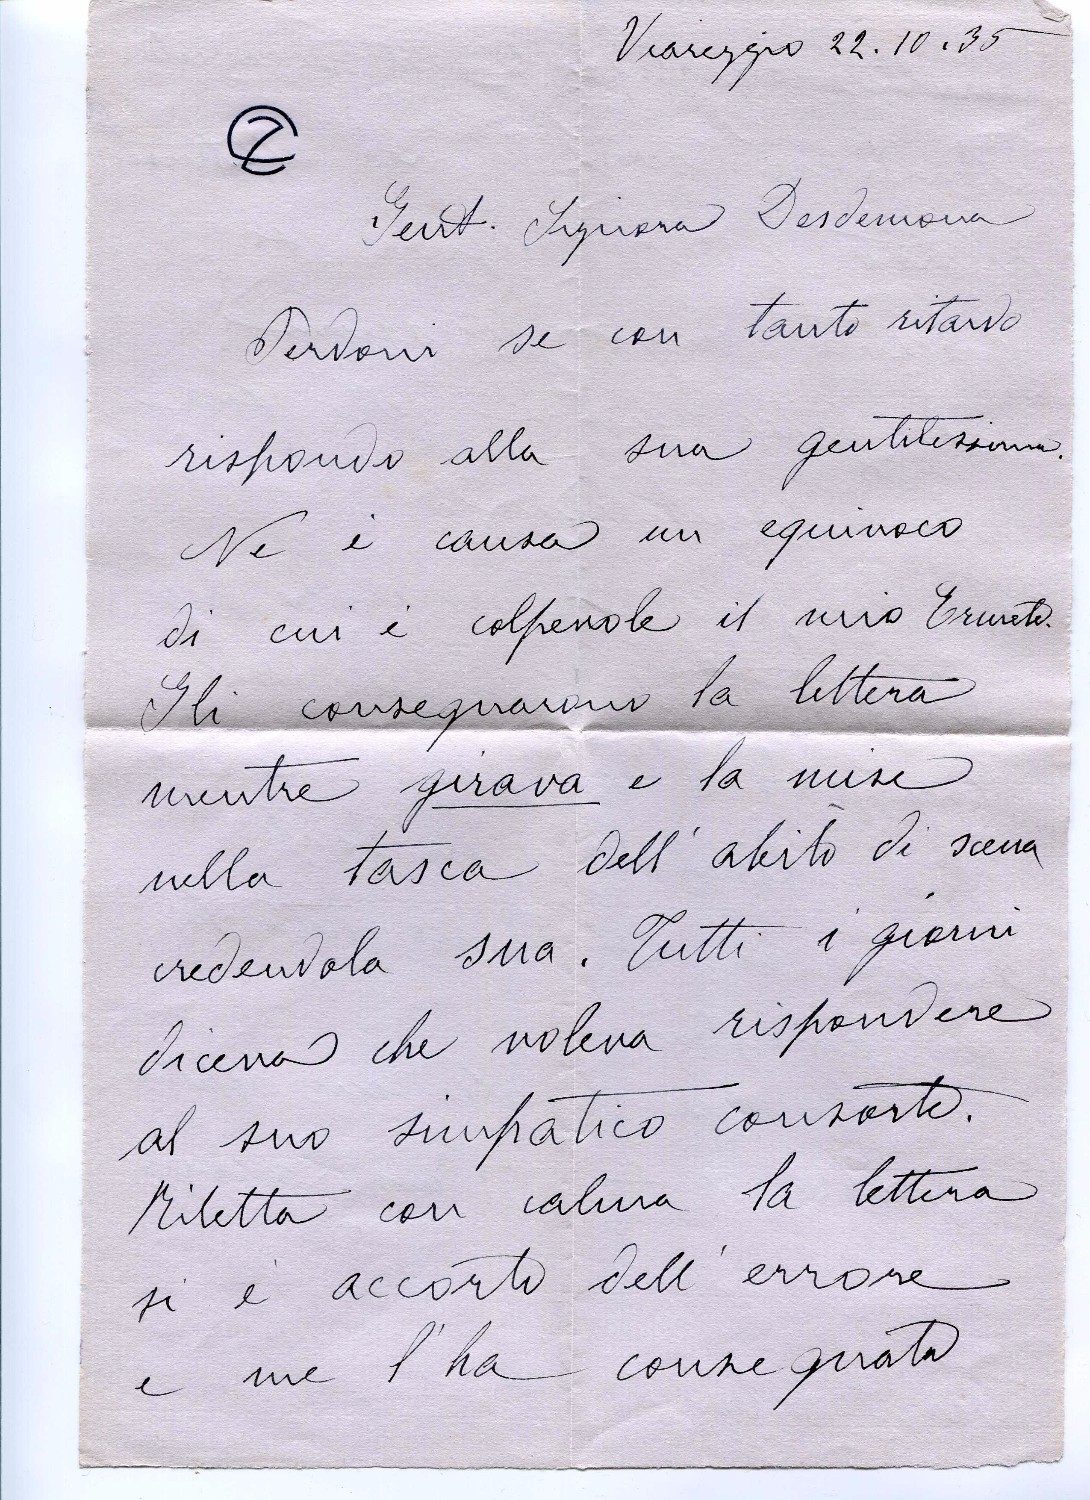 Viareggio 22.10.35
Gent. Signora Desdemona
Perdoni se con tanto ritardo
rispondo alla sua gentilissima.
Ne è causa un equivoco
di cui è colpevole il mio Ermete.
Gli consegnarono la lettera
mentre girava e la mise
nella tasca dell'abito di scena
credendola sua. Tutti i giorni
diceva che voleva rispondere
al suo simpatico consorte.
Riletta con calma la lettera
si è accorto dell'errore
e me l'ha consegnata